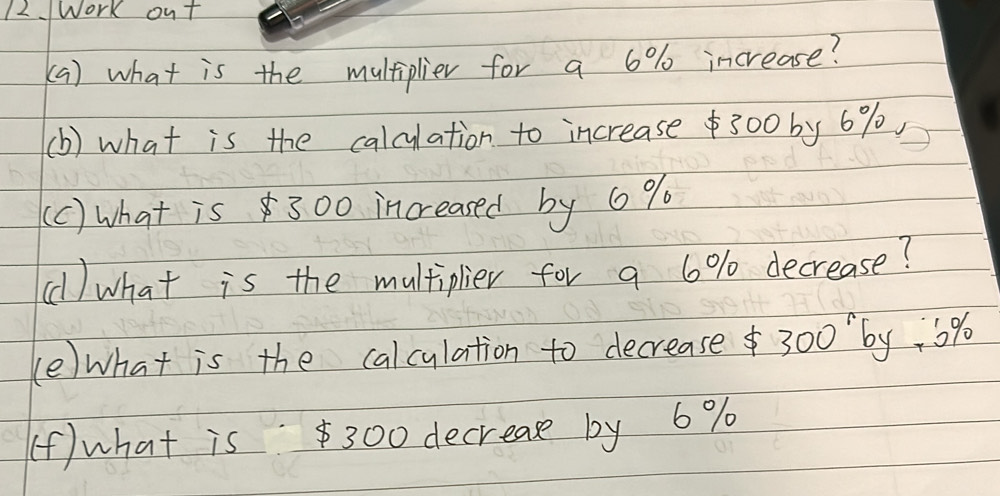 12. Work out
(a) what is the multiplier for a 6% increase?
(b) what is the calculation to increase $300 by 6%
(c) what is $300 increased by 6%
(d) what is the multiplier for a 6% decrease?
(e) What is the calculation to decrease $300 by 6%
(f) what is $300 decrease by 6%